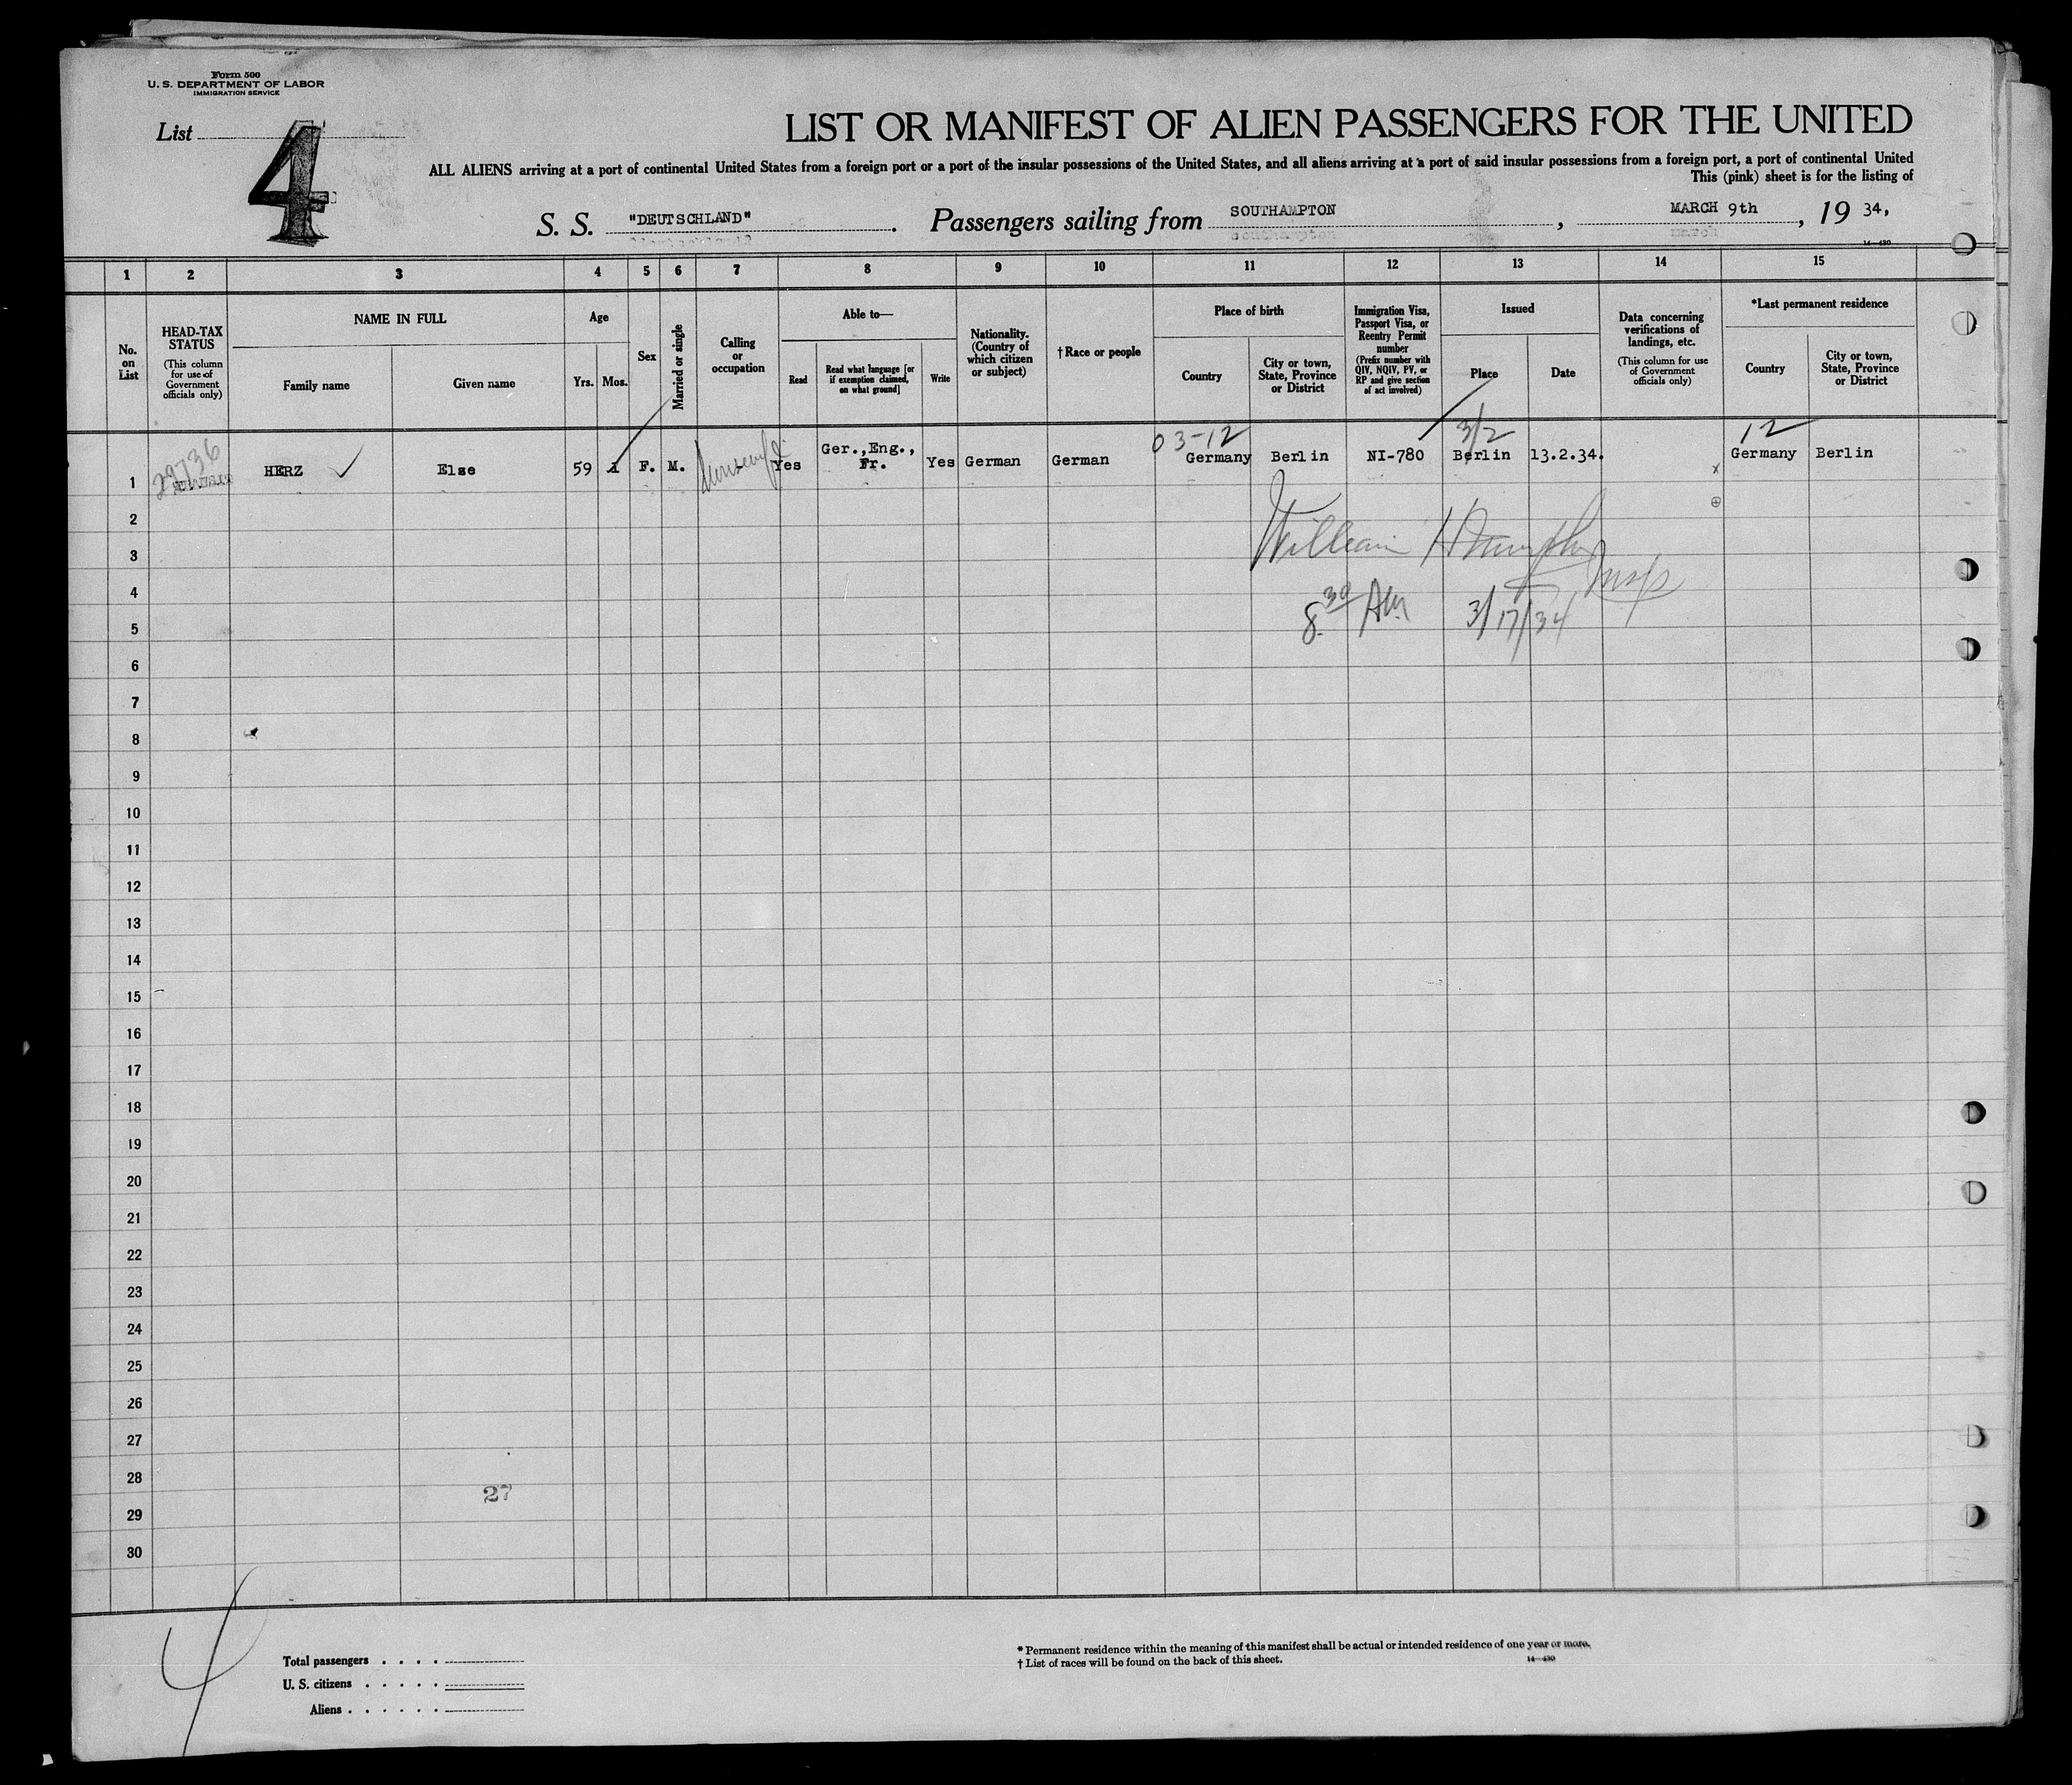 Form 500
U. S. DEPARTMENT OF LABOR
IMMIGRATION SERVICE
List
4
LIST OR MANIFEST OF ALIEN PASSENGERS FOR THE UNITED
ALL ALIENS arriving at a port of continental United States from a foreign port or a port of the insular possessions of the United States, and all aliens arriving at a port of said insular possessions from a foreign port, a port of continental United
This (pink) sheet is for the listing of
S. S. "DEUTSCHLAND". Passengers sailing from SOUTHAMPTON, MARCH 9th, 19 34,
14—430
1 2 3 4 5 6 7 8 9 10 11 12 13 14 15
No. on List
HEAD-TAX STATUS
(This column for use of Government officials only)
NAME IN FULL
Family name
Given name
Age
Yrs.
Mos.
Sex
Married or single
Calling or occupation
Able to—
Read
Read what language [or if exemption claimed, on what ground]
Write
Nationality. (Country of which citizen or subject)
† Race or people
Place of birth
Country
City or town, State, Province or District
Immigration Visa, Passport Visa, or Reentry Permit number
(Prefix number with QIV, NQIV, PV, or RP and give section of act involved)
Issued
Place
Date
Data concerning verifications of landings, etc.
(This column for use of Government officials only)
*Last permanent residence
Country
City or town, State, Province or District
03-12 3/2 12
29736
1 HERZ Else 59 1 F. M. Yes Ger.,Eng., Fr. Yes German German Germany Berlin NI-780 Berlin 13.2.34. x Germany Berlin
2
William H Murphy
3
Insp
4
8.30 AM 3/17/34
5
6
7
8
9
10
11
12
13
14
15
16
17
18
19
20
21
22
23
24
25
26
27
28
27
29
30
Total passengers . . . .
U. S. citizens . . . . .
Aliens . . . . . .
* Permanent residence within the meaning of this manifest shall be actual or intended residence of one year or more.
† List of races will be found on the back of this sheet.
14—430